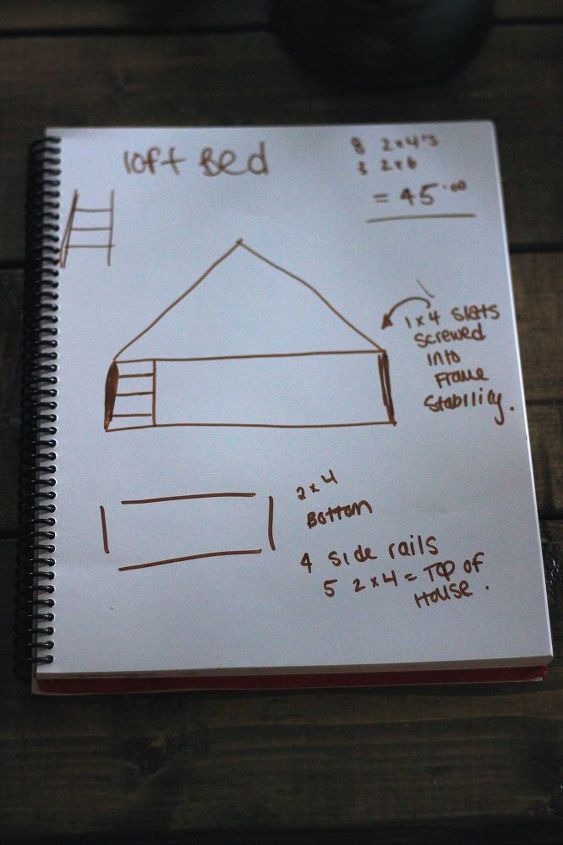 loft Bed
8 2x4's
3 2x6
= 45.00
1x4 Slats
Screwed
into
Frame
Stability.
2x4
Bottom
4 side rails
5 2x4 = Top of
House.